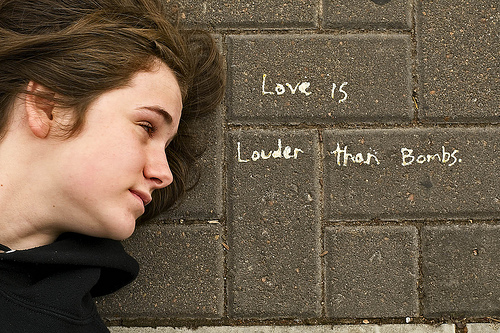 Love is
Louder than Bombs.